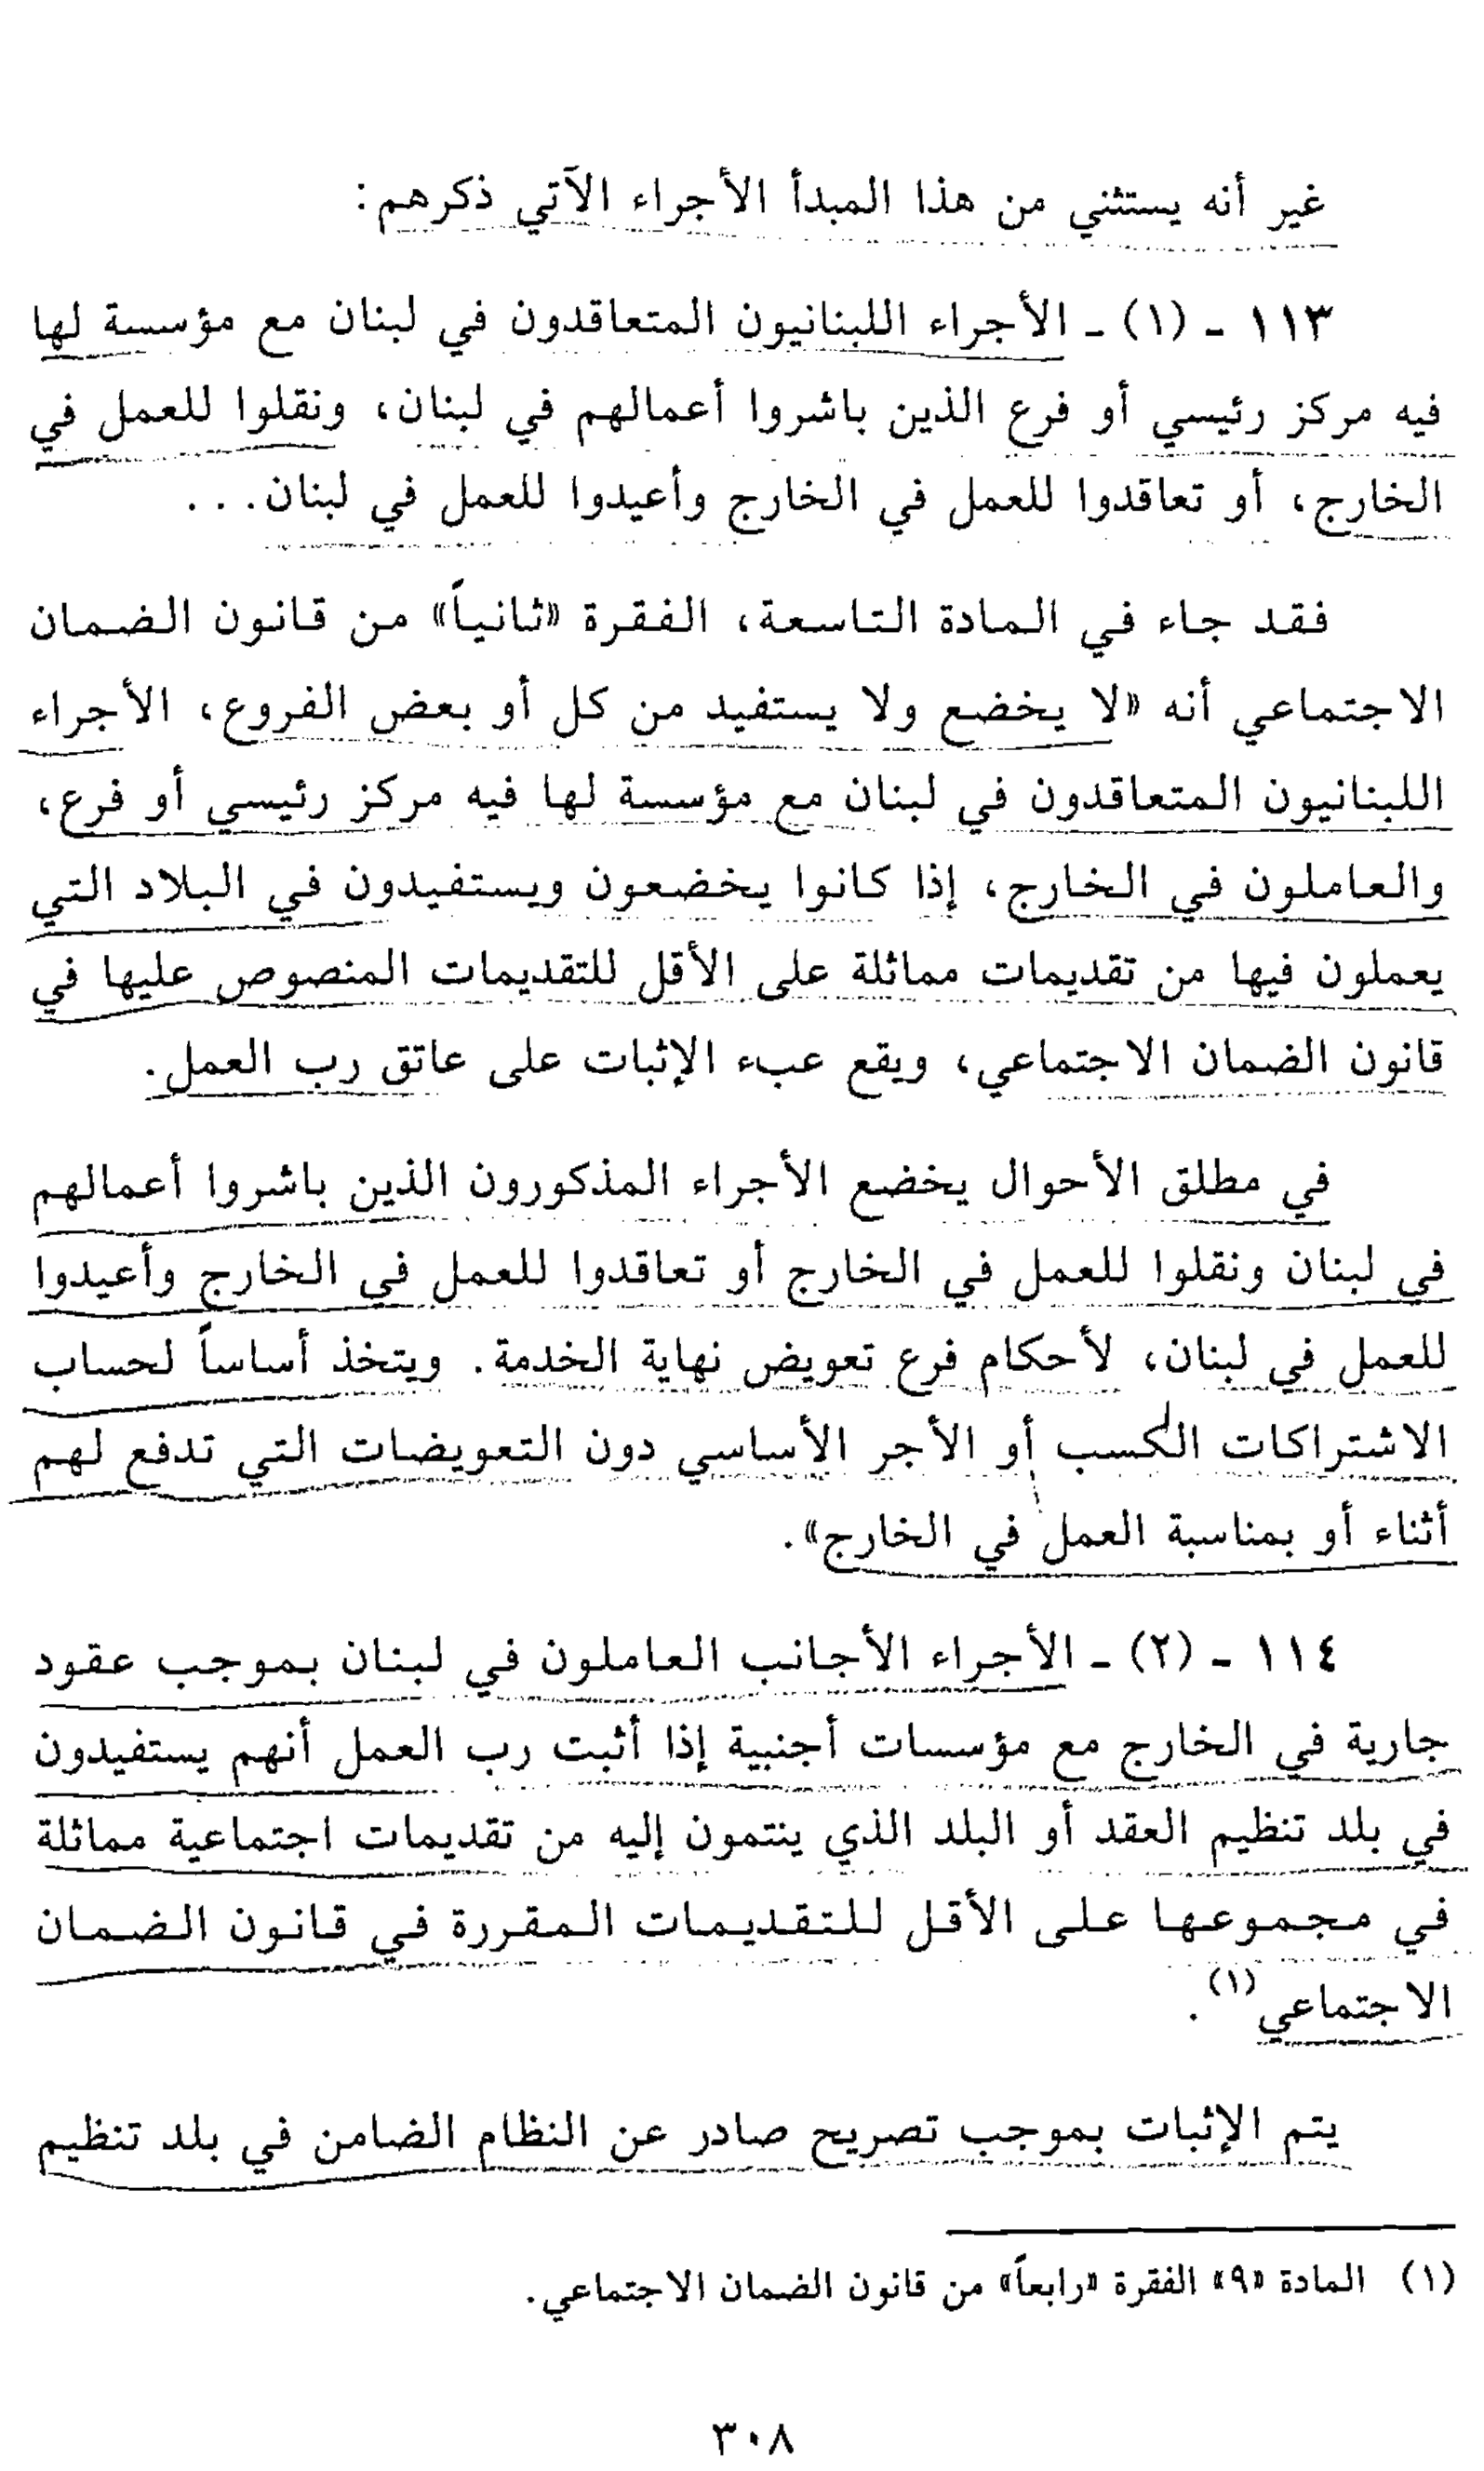 غير أنه يستثني من هذا المبدأ الأجراء الآتي ذكرهم:
١١٣ - (١) - الأجراء اللبنانيون المتعاقدون في لبنان مع مؤسسة لها
فيه مركز رئيسي أو فرع الذين باشروا أعمالهم في لبنان، ونقلوا للعمل في
الخارج، أو تعاقدوا للعمل في الخارج وأعيدوا للعمل في لبنان...
فقد جاء في المادة التاسعة، الفقرة «ثانياً» من قانون الضمان
الاجتماعي أنه «لا يخضع ولا يستفيد من كل أو بعض الفروع، الأجراء
اللبنانيون المتعاقدون في لبنان مع مؤسسة لها فيه مركز رئيسي أو فرع،
والعاملون في الخارج، إذا كانوا يخضعون ويستفيدون في البلاد التي
يعملون فيها من تقديمات مماثلة على الأقل للتقديمات المنصوص عليها في
قانون الضمان الاجتماعي، ويقع عبء الإثبات على عاتق رب العمل.
في مطلق الأحوال يخضع الأجراء المذكورون الذين باشروا أعمالهم
في لبنان ونقلوا للعمل في الخارج أو تعاقدوا للعمل في الخارج وأعيدوا
للعمل في لبنان، لأحكام فرع تعويض نهاية الخدمة. ويتخذ أساساً لحساب
الاشتراكات الكسب أو الأجر الأساسي دون التعويضات التي تدفع لهم
أثناء أو بمناسبة العمل في الخارج».
١١٤ - (٢) - الأجراء الأجانب العاملون في لبنان بموجب عقود
جارية في الخارج مع مؤسسات أجنبية إذا أثبت رب العمل أنهم يستفيدون
في بلد تنظيم العقد أو البلد الذي ينتمون إليه من تقديمات اجتماعية مماثلة
في مجموعها على الأقل للتقديمات المقررة في قانون الضمان
الاجتماعي(١).
يتم الإثبات بموجب تصريح صادر عن النظام الضامن في بلد تنظيم
(١) المادة «٩» الفقرة «رابعاً» من قانون الضمان الاجتماعي.
٣٠٨